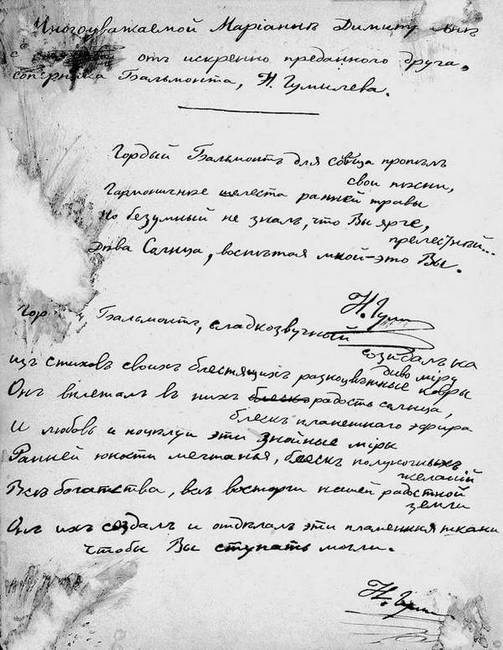 Многоуважаемой Маріаннѣ Димитр
отъ искренно преданного друга,
соперника Бальмонта, Н. Гумилева.
Гордый Бальмонтъ для солнца пропѣлъ
свои пѣсни,
Гармоничнѣе шелеста ранней травы
Но безумный не зналъ, что Вы ярче,
прелестнѣй...
Дѣва Солнца, воспѣтая мной – это Вы.
Н. Гум
Гор Бальмонтъ, сладкозвучный
созидалъ на
диво міру
изъ стиховъ своихъ блестящихъ разноцвѣтные ковры
Онъ вплеталъ въ нихъ блескъ радость солнца,
блескъ пламеннаго эфира
И любовь и поцѣлуи эти знойные міры
Ранней юности мечтанья, блескъ полуночныхъ
желаній
Всѣ богатства, всѣ восторги нашей радостной
земли
Онъ ихъ создалъ и отдѣлалъ эти пламенныя ткани
Чтобы Вы ступать могли.
Н. Гум